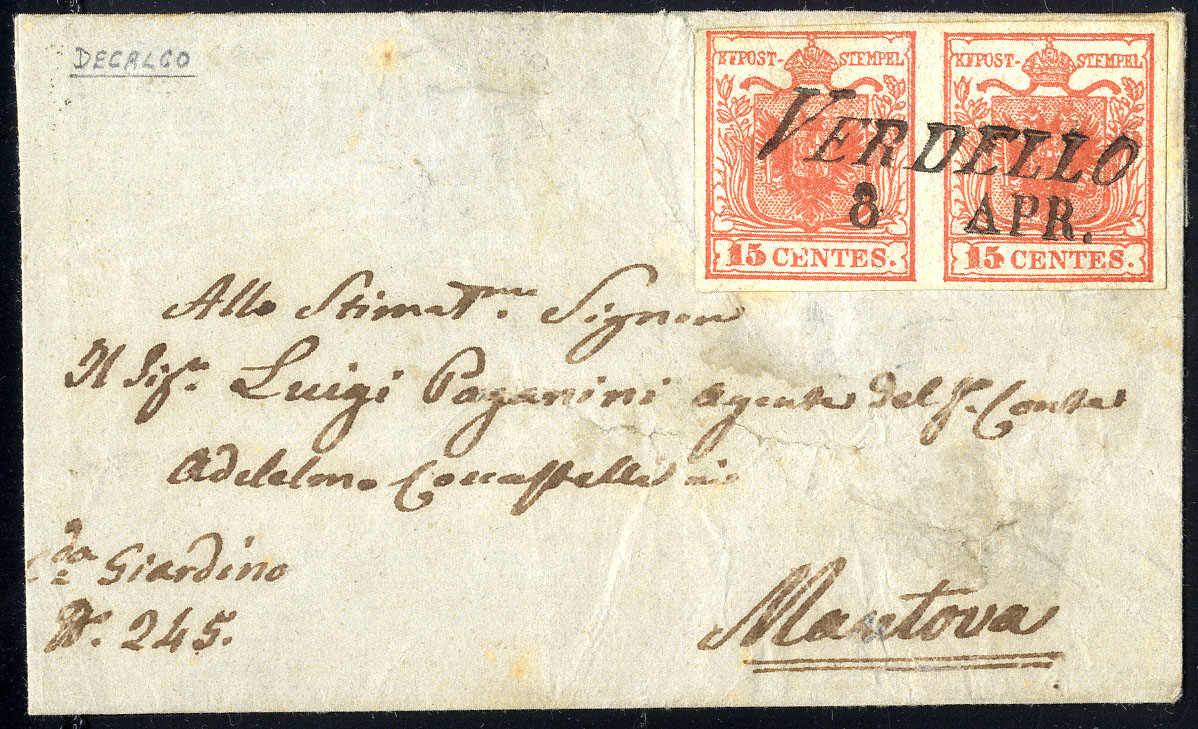 DECALCO
KKPOST- STEMPEL KKPOST- STEMPEL
VERDELLO
8 APR.
15 CENTES. 15 CENTES.
Allo Stimatmo. Signor
Il Sigr. Luigi Paganini Agente del Sr. Conte
Adelelmo Cocastelli in
Cda Giardino
N. 245.
Mantova